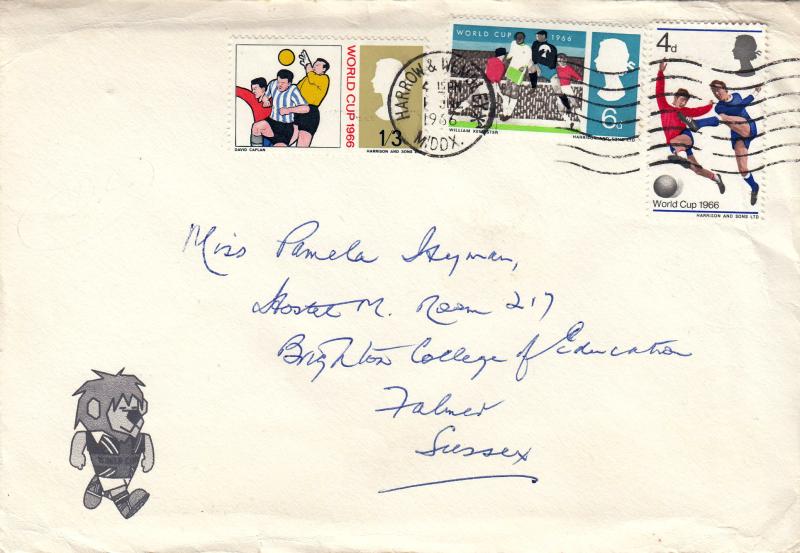 WORLD CUP 1966
1/3
DAVID CAPLAN
HARRISON AND SONS
HARROW & WEMBLEY
1966
MIDDX.
WORLD CUP 1966
6d
HARRISON AND SONS LTD
4d
World Cup 1966
HARRISON AND SONS LTD
Miss Pamela Hyman,
Hostel M. Room 217
Brighton College of Education
Falmer
Sussex
WORLD CUP